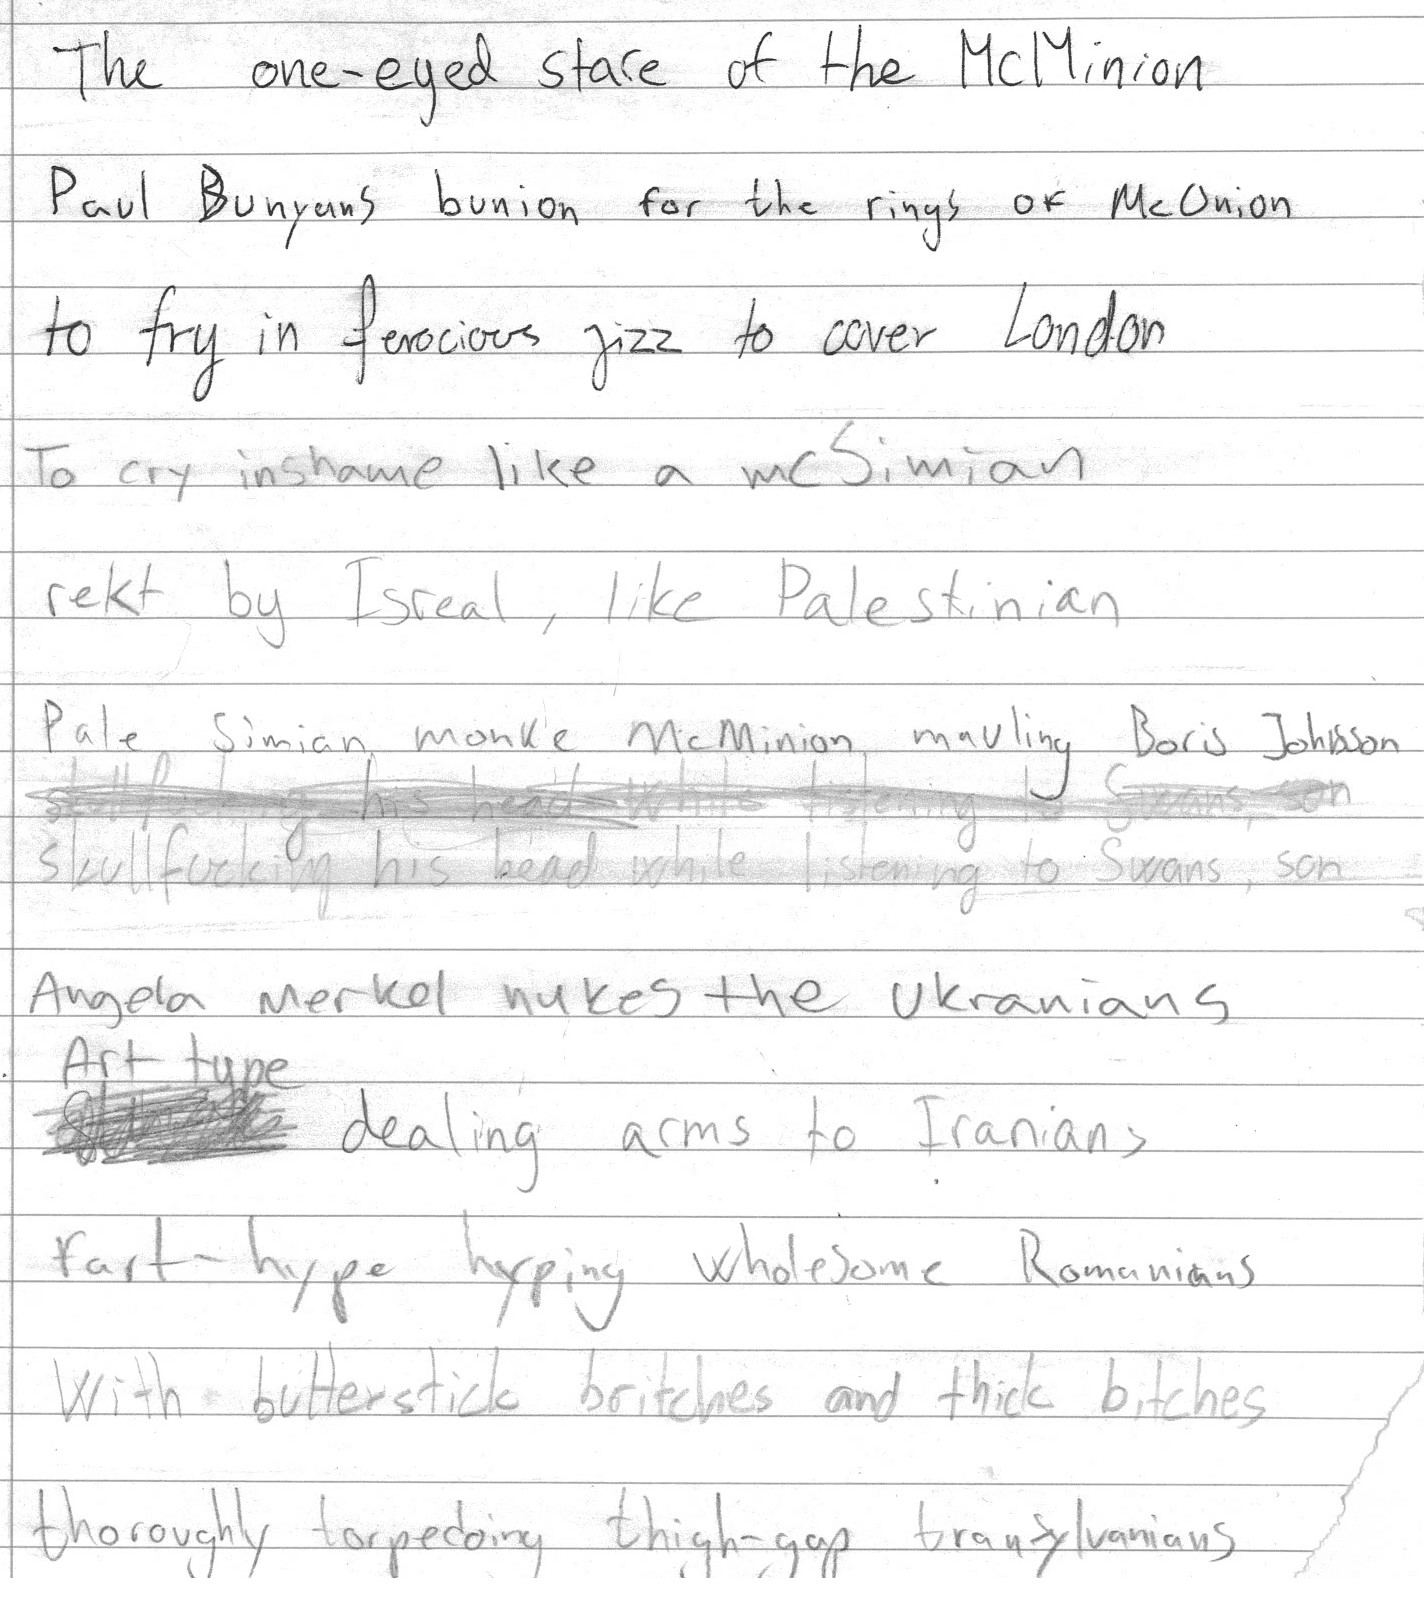 The one-eyed stare of the McMinion
Paul Bunyans bunion for the rings of McOnion
to fry in ferocious jizz to cover London
To cry inshame like a mcSimian
rekt by Isreal, like Palestinian
Pale Simian monke McMinion mauling Boris Johnson
skullfucking his head while listening to Swans, son
skullfucking his head while listening to Swans, son
Angela Merkel nukes the Ukranians
Art type
dealing arms to Iranians
Fart-hype hyping wholesome Romanians
With butterstick britches and thick bitches
thoroughly torpedoing thigh-gap transylvanians